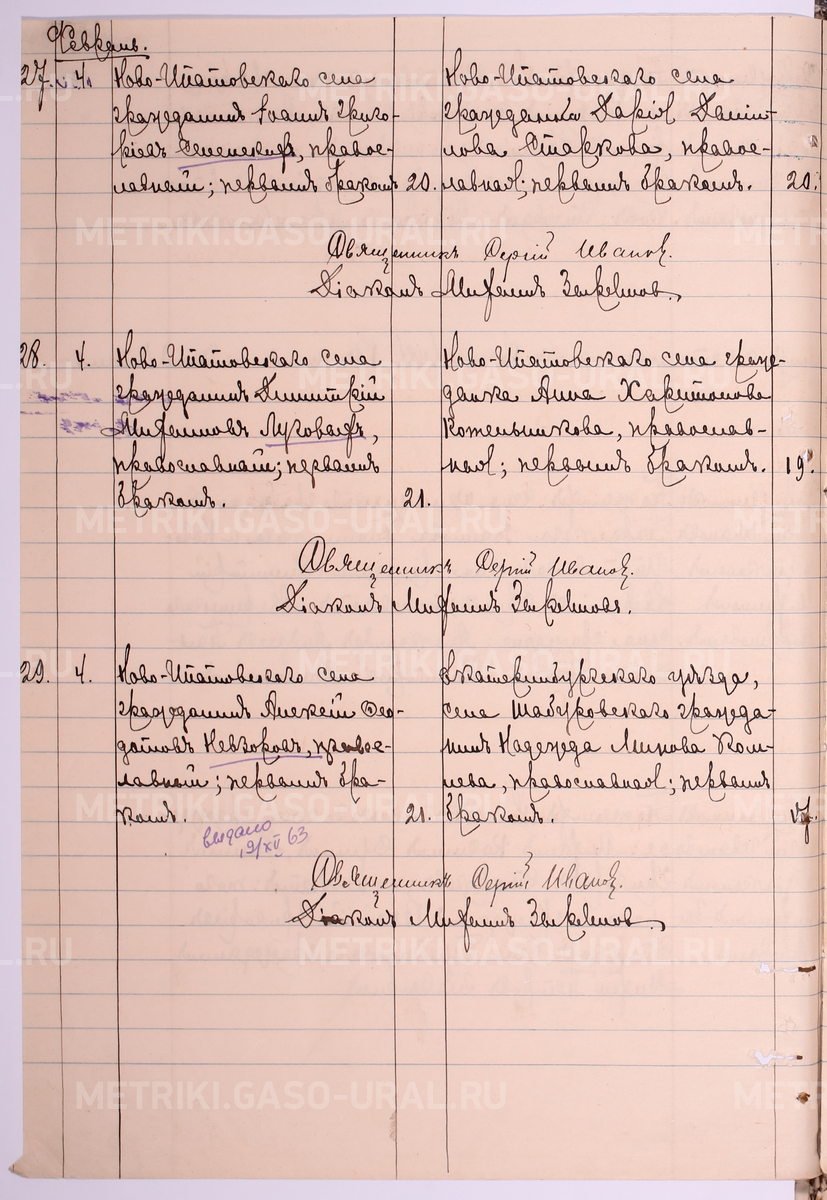 Февраль.
27. 4.
Ново-Ипатовскаго села
гражданинъ Іоаннъ Григо-
рьевъ правос-
лавный; первымъ бракомъ 20.
Ново-Ипатовскаго села
гражданка Дарія Даніи-
лова Старкова, правос-
лавная; первымъ бракомъ. 20.
Священникъ Сергій Ивановъ.
Діаконъ Михаилъ
28. 4.
Ново-Ипатовскаго села
гражданинъ Димитрій
Михаиловъ Луговыхъ,
православный; первымъ
бракомъ. 21.
Ново-Ипатовскаго села граж-
данка Анна Харитонова
Котельникова, православ-
ная; первымъ бракомъ. 19.
Священникъ Сергій Ивановъ.
Діаконъ Михаилъ
29. 4.
Ново-Ипатовскаго села
гражданинъ Алексій Ѳео-
дотовъ Невзоровъ, правос-
лавный; первымъ бра-
комъ. 21.
Екатеринбургскаго уѣзда,
села Шабуровскаго гражда-
нинъ Надежда Минова Кор-
нева, православная; первымъ
бракомъ. 17.
выдано
19/XII 63
Священникъ Сергій Ивановъ.
Діаконъ Михаилъ
METRIKI.GASO-URAL.RU